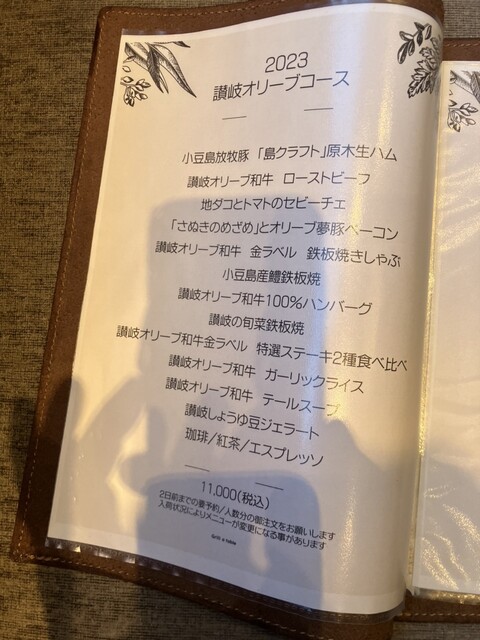 2023
讃岐オリーブコース
小豆島放牧豚 「島クラフト」原木生ハム
讃岐オリーブ和牛 ローストビーフ
地ダコとトマトのセビーチェ
「さぬきのめざめ」とオリーブ夢豚ベーコン
讃岐オリーブ和牛 金ラベル 鉄板焼きしゃぶ
小豆島産鱧鉄板焼
讃岐オリーブ和牛100%ハンバーグ
讃岐の旬菜鉄板焼
讃岐オリーブ和牛金ラベル 特選ステーキ2種食べ比べ
讃岐オリーブ和牛 ガーリックライス
讃岐オリーブ和牛 テールスープ
讃岐しょうゆ豆ジェラート
珈琲/紅茶/エスプレッソ
11,000(税込)
2日前までの要予約/人数分の御注文をお願いします
入荷状況によりメニューが変更になる事があります